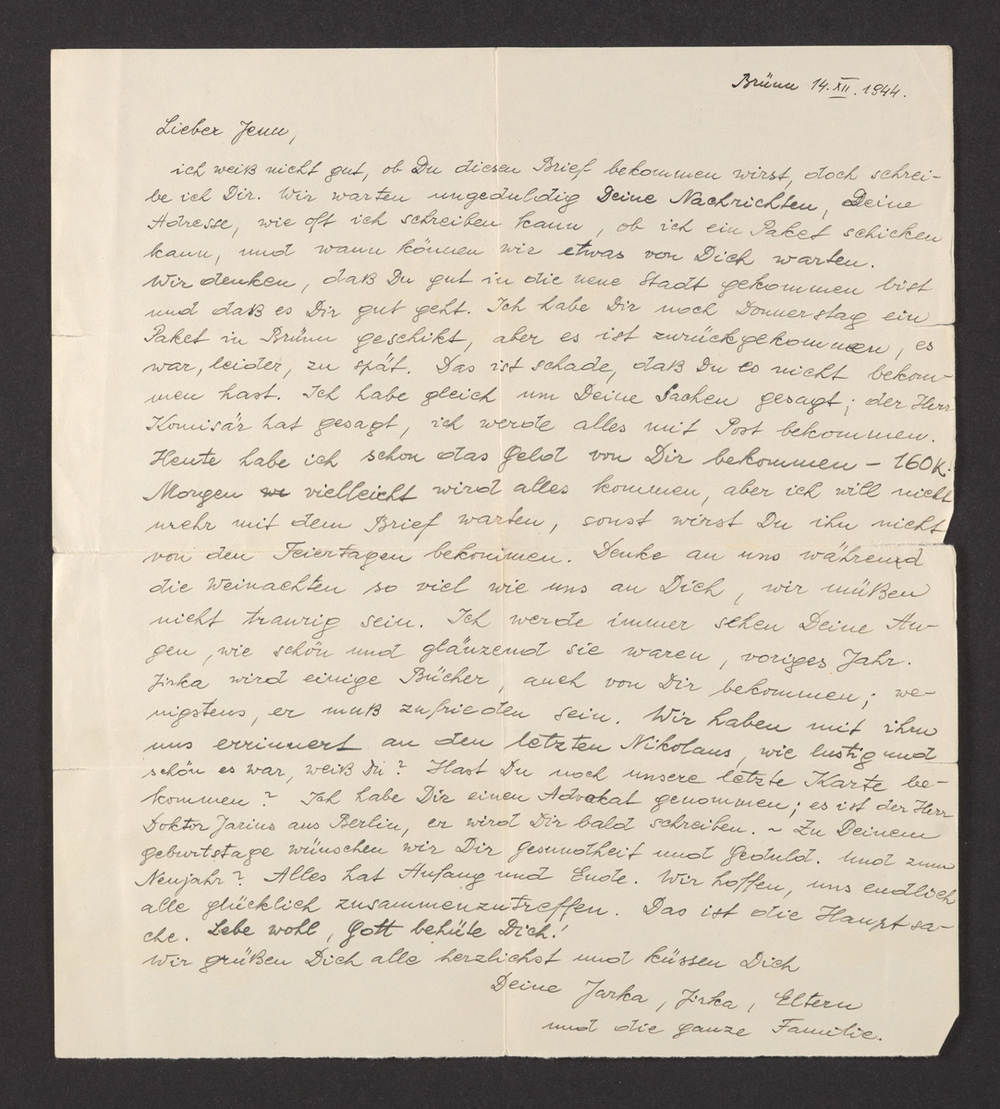 Brünn 14.XII.1944.
Lieber Jenn,
ich weiß nicht gut, ob Du diesen Brief bekommen wirst, doch schrei-
be ich Dir. Wir warten ungeduldig Deine Nachrichten, Deine
Adresse, wie oft ich schreiben kann, ob ich ein Paket schicken
kann, und wann können wir etwas von Dich warten.
Wir denken, daß Du gut in die neue Stadt gekommen bist
und daß es Dir gut geht. Ich habe Dir noch Donnerstag ein
Paket in Brünn geschikt, aber es ist zurückgekommen, es
war, leider, zu spät. Das ist schade, daß Du es nicht bekom-
men hast. Ich habe gleich um Deine Sachen gesagt; der Herr
Komisär hat gesagt, ich werde alles mit Post bekommen.
Heute habe ich schon das Geld von Dir bekommen – 160 K.
Morgen vielleicht wird alles kommen, aber ich will nicht
mehr mit dem Brief warten, sonst wirst Du ihn nicht
von den Feiertagen bekommen. Denke an uns während
die Weinachten so viel wie uns an Dich, wir müßen
nicht traurig sein. Ich werde immer sehen Deine Au-
gen, wie schön und glänzend sie waren, voriges Jahr.
Jirka wird einige Bücher, auch von Dir bekommen; we-
nigstens, er muß zufrieden sein. Wir haben mit ihm
uns errinnert an den letzten Nikolaus, wie lustig und
schön es war, weißt Du? Hast Du noch unsere letzte Karte be-
kommen? Ich habe Dir einen Advokat genommen; es ist der Herr
Doktor Jarius aus Berlin, er wird Dir bald schreiben. – Zu Deinem
Geburtstage wünschen wir Dir Gesundheit und Geduld. Und zum
Neujahr? Alles hat Anfang und Ende. Wir hoffen, uns endlich
alle glücklich zusammenzutreffen. Das ist die Hauptsa-
che. Lebe wohl, Gott behüte Dich!
Wir grüßen Dich alle herzlichst und küssen Dich
Deine Jarka, Jirka, Eltern
und die ganze Familie.